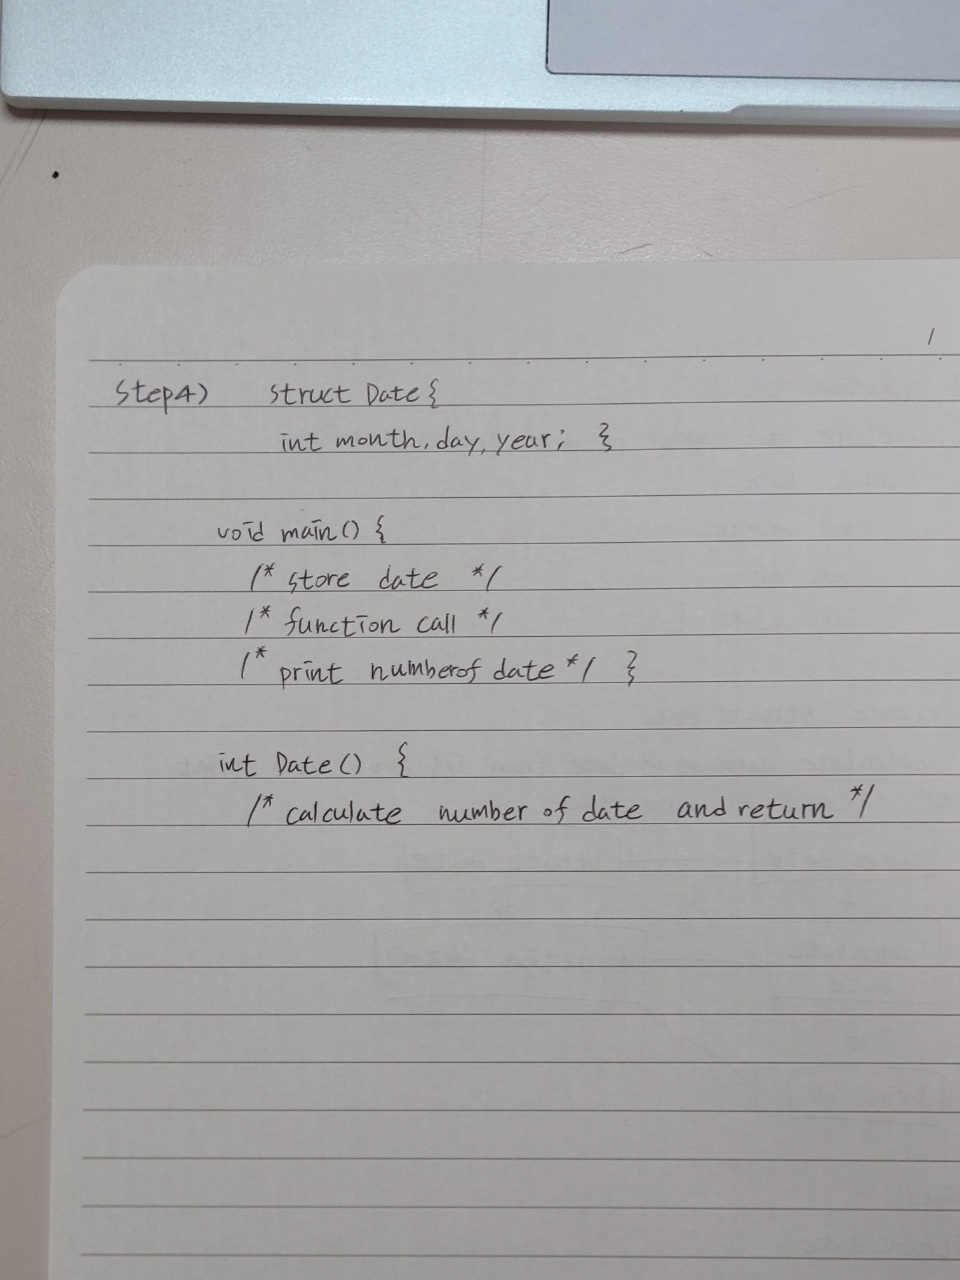 Step4) struct Date {
int month, day, year; }
void main() {
/* store date */
/* function call */
/* print numberof date */ }
int Date() {
/* calculate number of date and return */